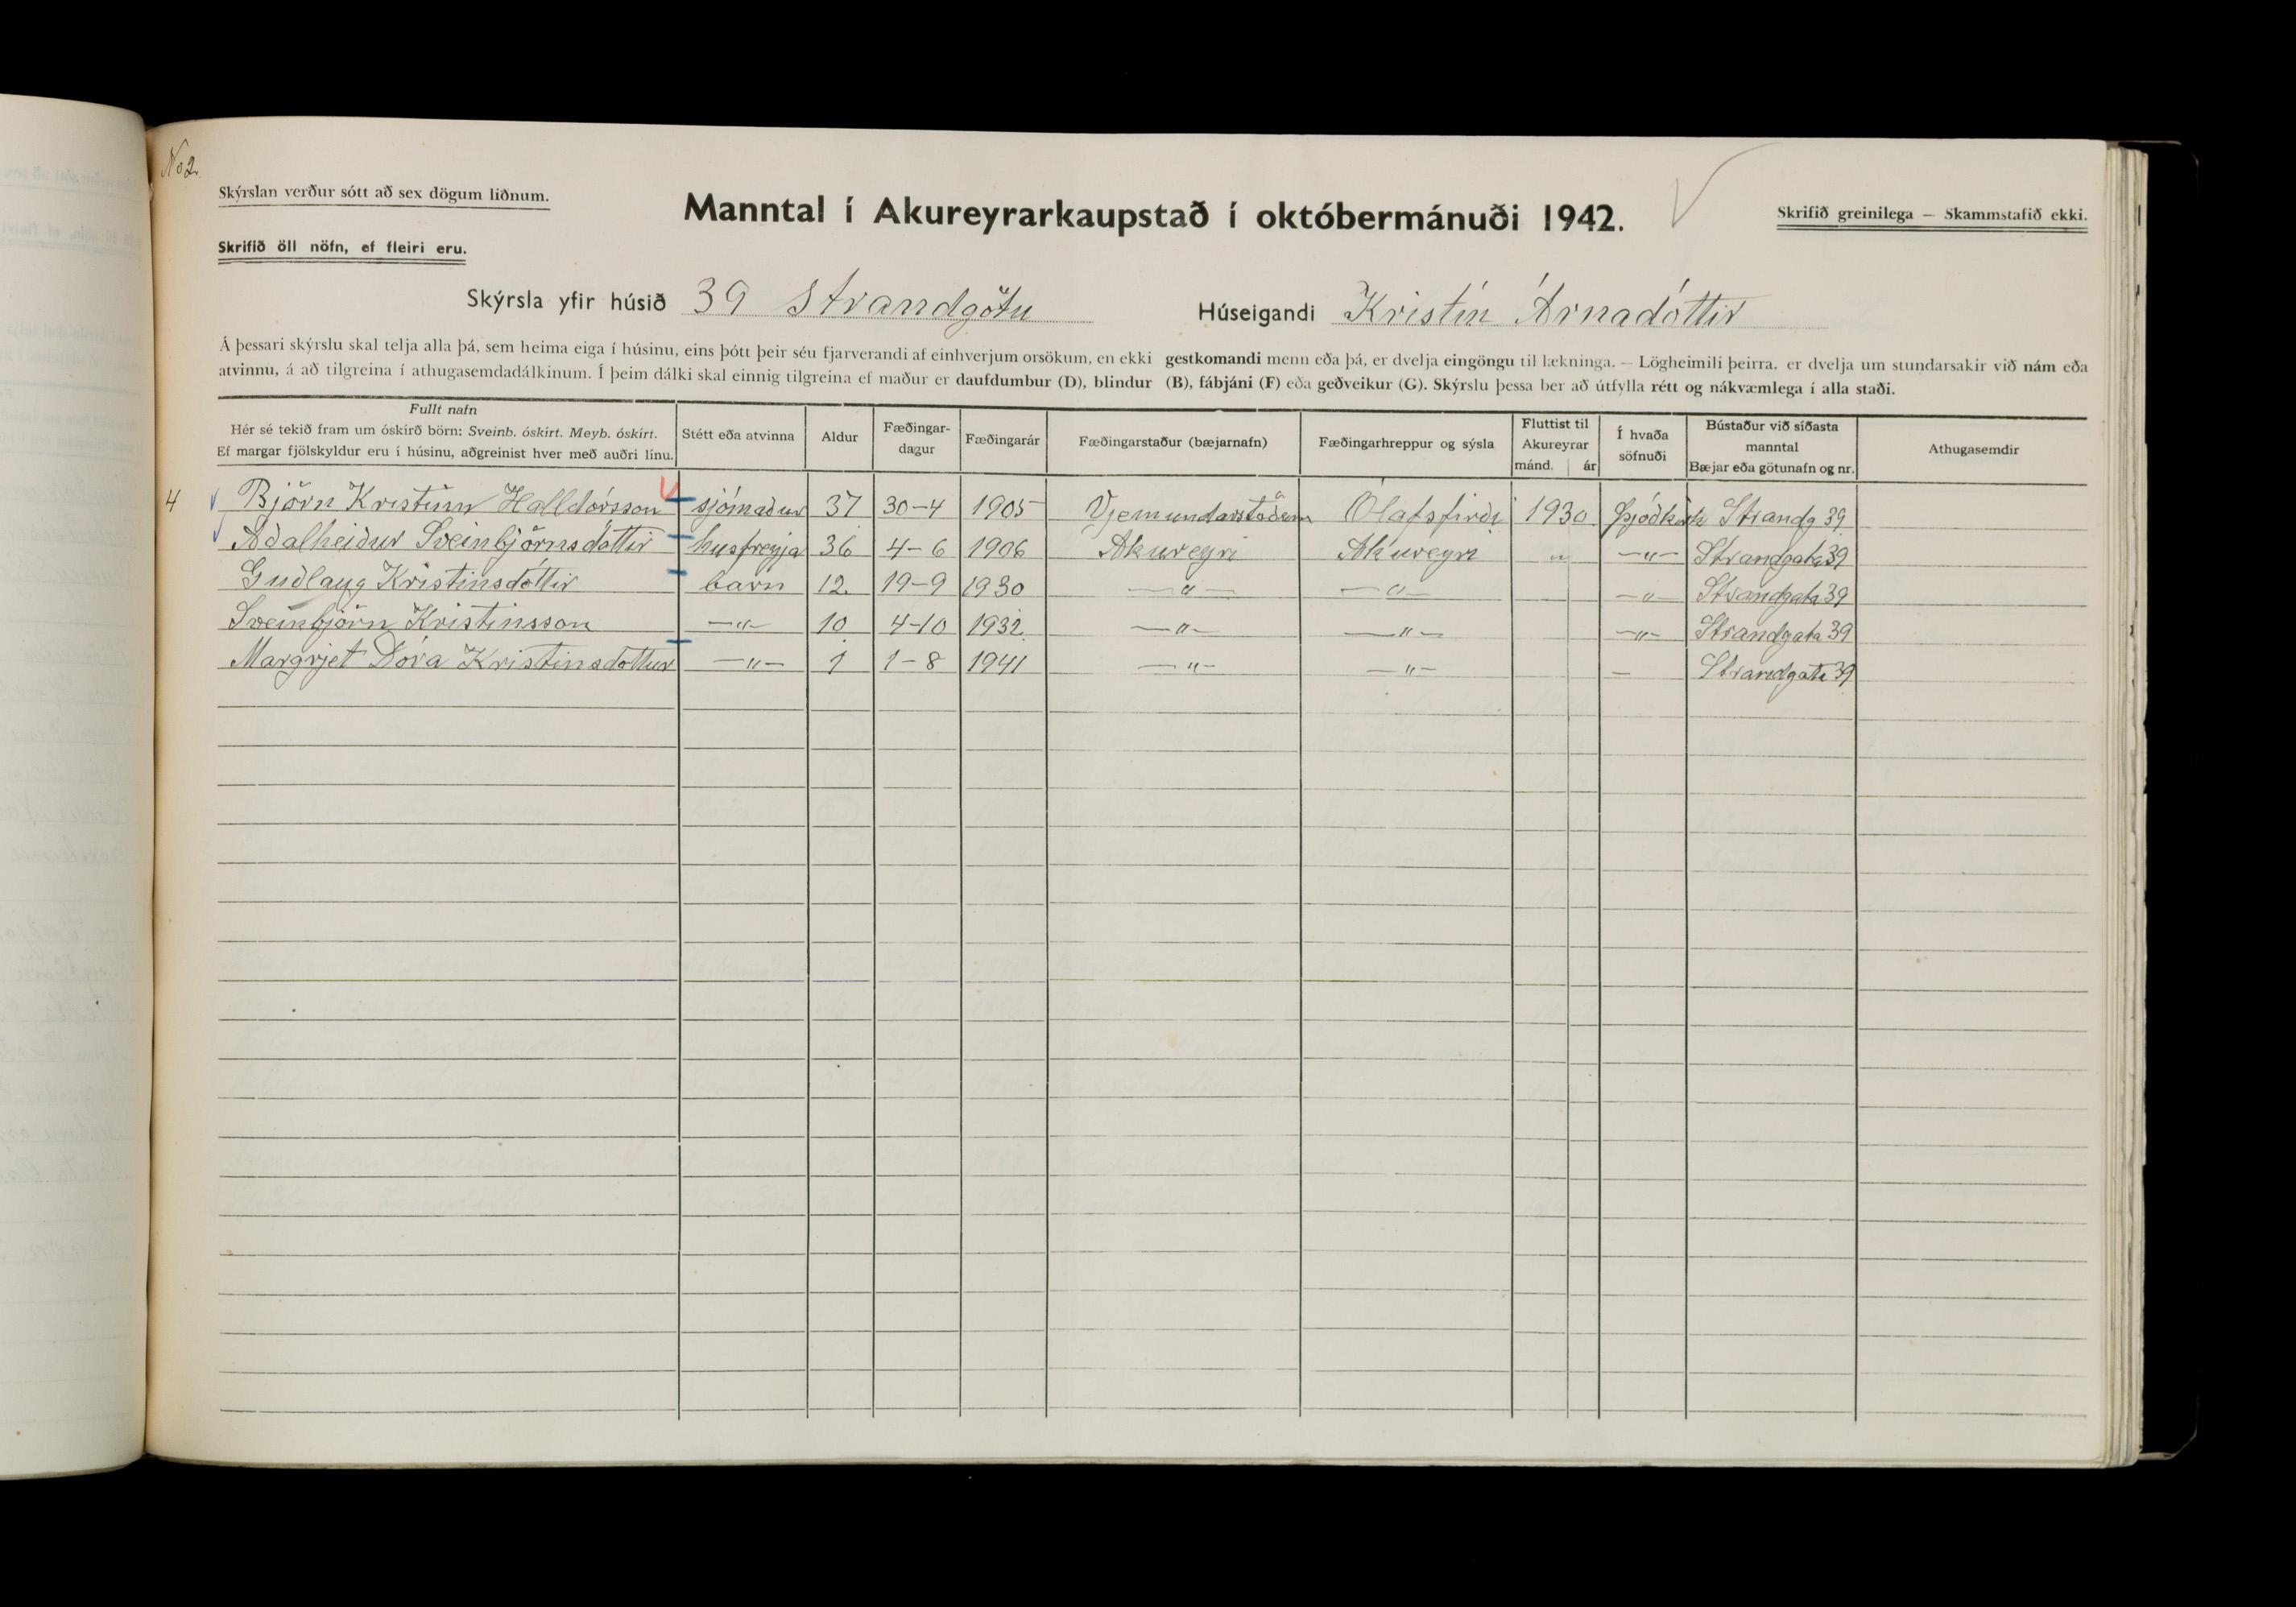 No 2.
Skýrslan verður sótt að sex dögum liðnum.
Manntal í Akureyrarkaupstað í októbermánuði 1942.
Skrifið greinilega — Skammstafið ekki.
Skrifið öll nöfn, ef fleiri eru.
Skýrsla yfir húsið 39 Strandgötu Húseigandi Kristín Árnadóttir
Á þessari skýrslu skal telja alla þá, sem heima eiga í húsinu, eins þótt þeir séu fjarverandi af einhverjum orsökum, en ekki gestkomandi menn eða þá, er dvelja eingöngu til lækninga. — Lögheimili þeirra, er dvelja um stundarsakir við nám eða
atvinnu, á að tilgreina í athugasemdadálkinum. Í þeim dálki skal einnig tilgreina ef maður er daufdumbur (D), blindur (B), fábjáni (F) eða geðveikur (G). Skýrslu þessa ber að útfylla rétt og nákvæmlega í alla staði.
Fullt nafn
Hér sé tekið fram um óskírð börn: Sveinb. óskírt. Meyb. óskírt.
Ef margar fjölskyldur eru í húsinu, aðgreinist hver með auðri línu.
Stétt eða atvinna
Aldur
Fæðingar-
dagur
Fæðingarár
Fæðingarstaður (bæjarnafn)
Fæðingarhreppur og sýsla
Fluttist til
Akureyrar
mánd. ár
Í hvaða
söfnuði
Bústaður við síðasta
manntal
Bæjar eða götunafn og nr.
Athugasemdir
4 Björn Kristinn Halldórsson sjómadur 37 30-4 1905 Vjemundarstöðum Ólafsfirdi 1930 Þjódkirk Strandg 39
Adalheidur Sveinbjörnsdóttir husfreyja 36 4-6 1906 Akureyri Akureyri " —"— Strandgata 39
Gudlaug Kristinsdóttir barn 12. 19-9 1930 —"— —"— —"— Strandgata 39
Sveinbjörn Kristinsson —"— 10 4-10 1932. —"— —"— —"— Strandgata 39
Margrjet Dóra Kristinsdottur —"— 1 1-8 1941 —"— —"— — Strandgata 39